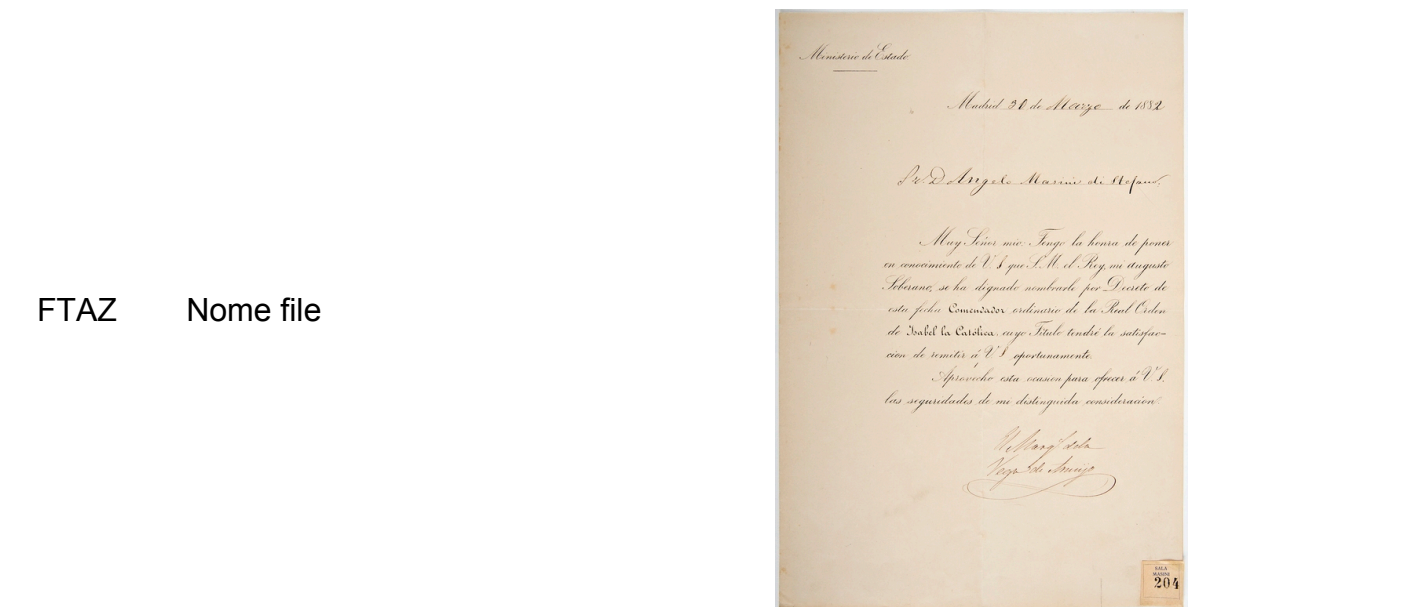 FTAZ Nome file
Ministerio de Estado
Madrid 30 de Marzo de 1882
Sr. D. Angelo Masini di Stefano.
Muy Señor mio: Tengo la honra de poner
en conocimiento de V. S. que S. M. el Rey, mi augusto
Soberano, se ha dignado nombrarle por Decreto de
esta fecha Comendador ordinario de la Real Orden
de Isabel la Católica, cuyo Título tendré la satisfac-
cion de remitir á V. S. oportunamente.
Aprovecho esta ocasion para ofrecer á V. S.
las seguridades de mi distinguida consideracion.
El Marqs de la
Vega de Armijo
SALA
MASINI
204